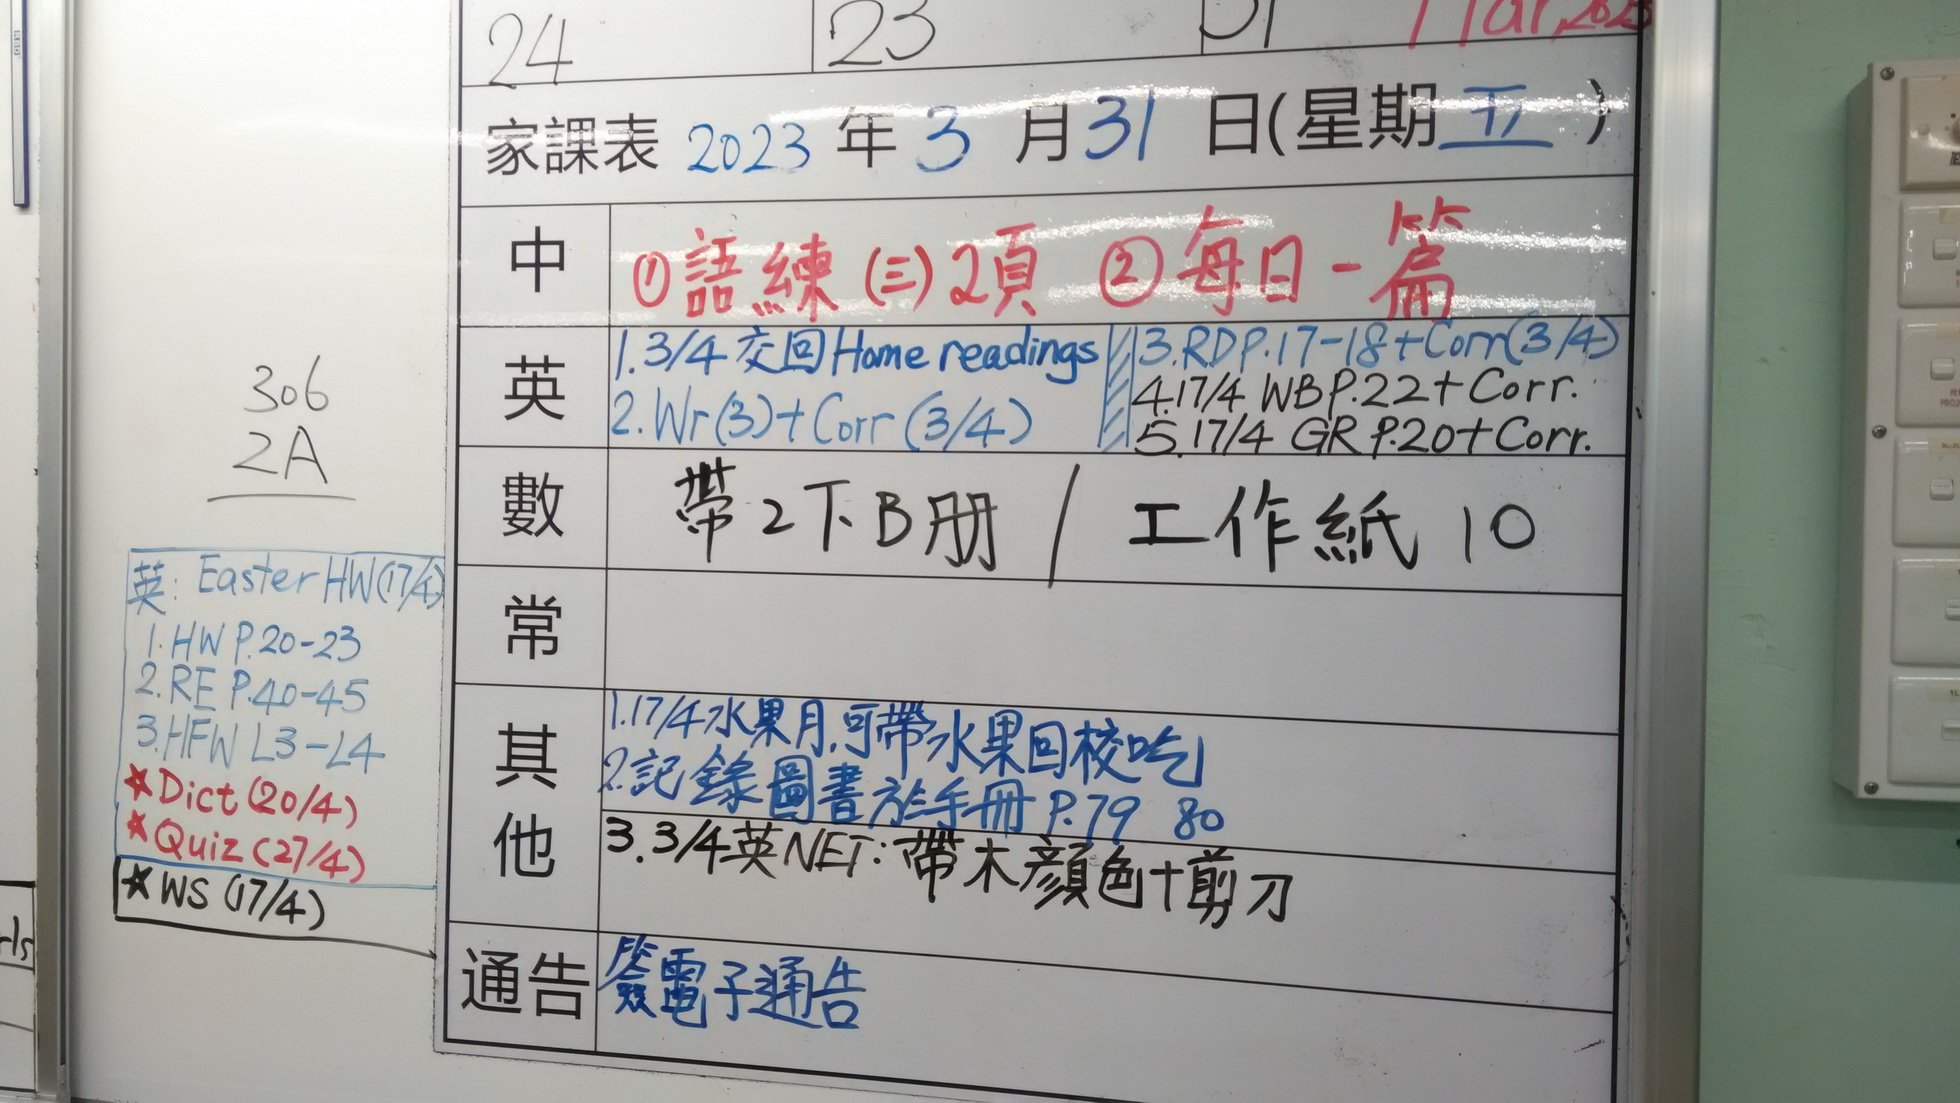 24
23
Mar, 2023
家課表 2023 年 3 月 31 日(星期 五 )
中
①語練(三)2頁 ②每日一篇
英
1.3/4 交回 Home readings
2.Wr(3)+Corr(3/4)
3.RDP.17-18+Corr(3/4)
4.17/4 WBP.22+Corr.
5.17/4 GRP.20+Corr.
數
帶2下B册 / 工作紙 10
常
其他
1.17/4水果月,可帶水果回校吃
2.記錄圖書於手冊 P.79 80
3.3/4英NET:帶木顏色+剪刀
通告
簽電子通告
306
2A
英: Easter HW(17/4)
1.HW P.20-23
2.RE P.40-45
3.HFW L3-L4
★Dict(20/4)
★Quiz(27/4)
★WS(17/4)